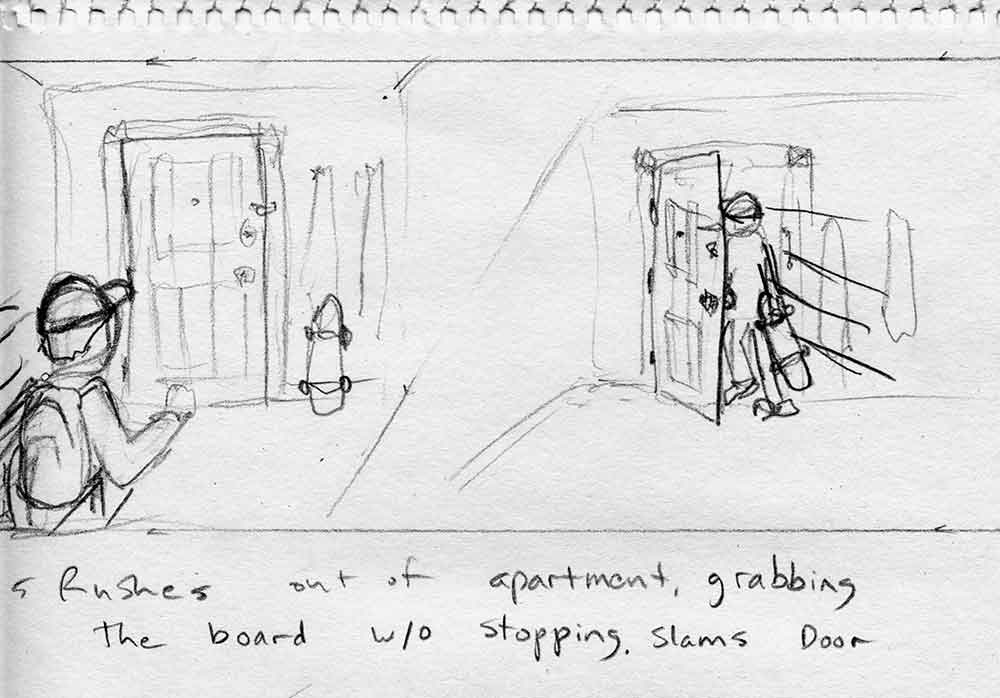 s Rushes out of apartment, grabbing
the board w/o stopping. slams Door